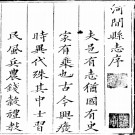 河間縣志序
夫邑有志猶國有史
家有乘也古今興廢
時異代殊其中士習
民風兵農錢穀禮教